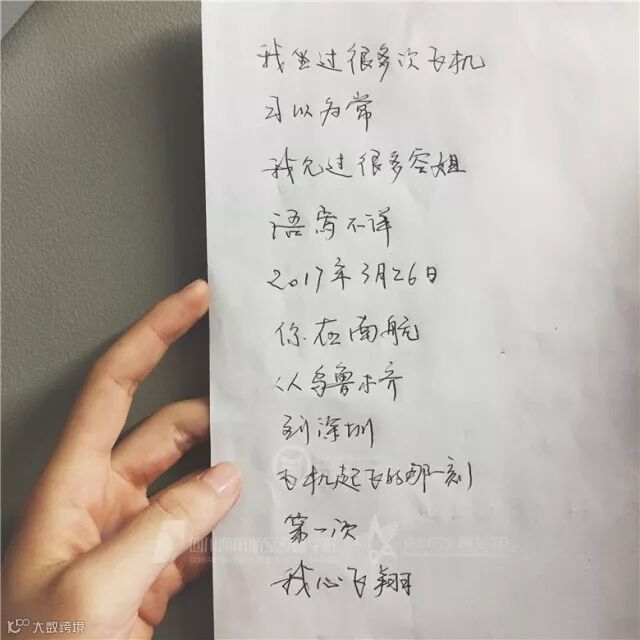 我坐过很多次飞机
习以为常
我见过很多空姐
语焉不详
2017年3月26日
你在南航
从乌鲁木齐
到深圳
飞机起飞的那一刻
第一次
我心飞翔
大数跨境